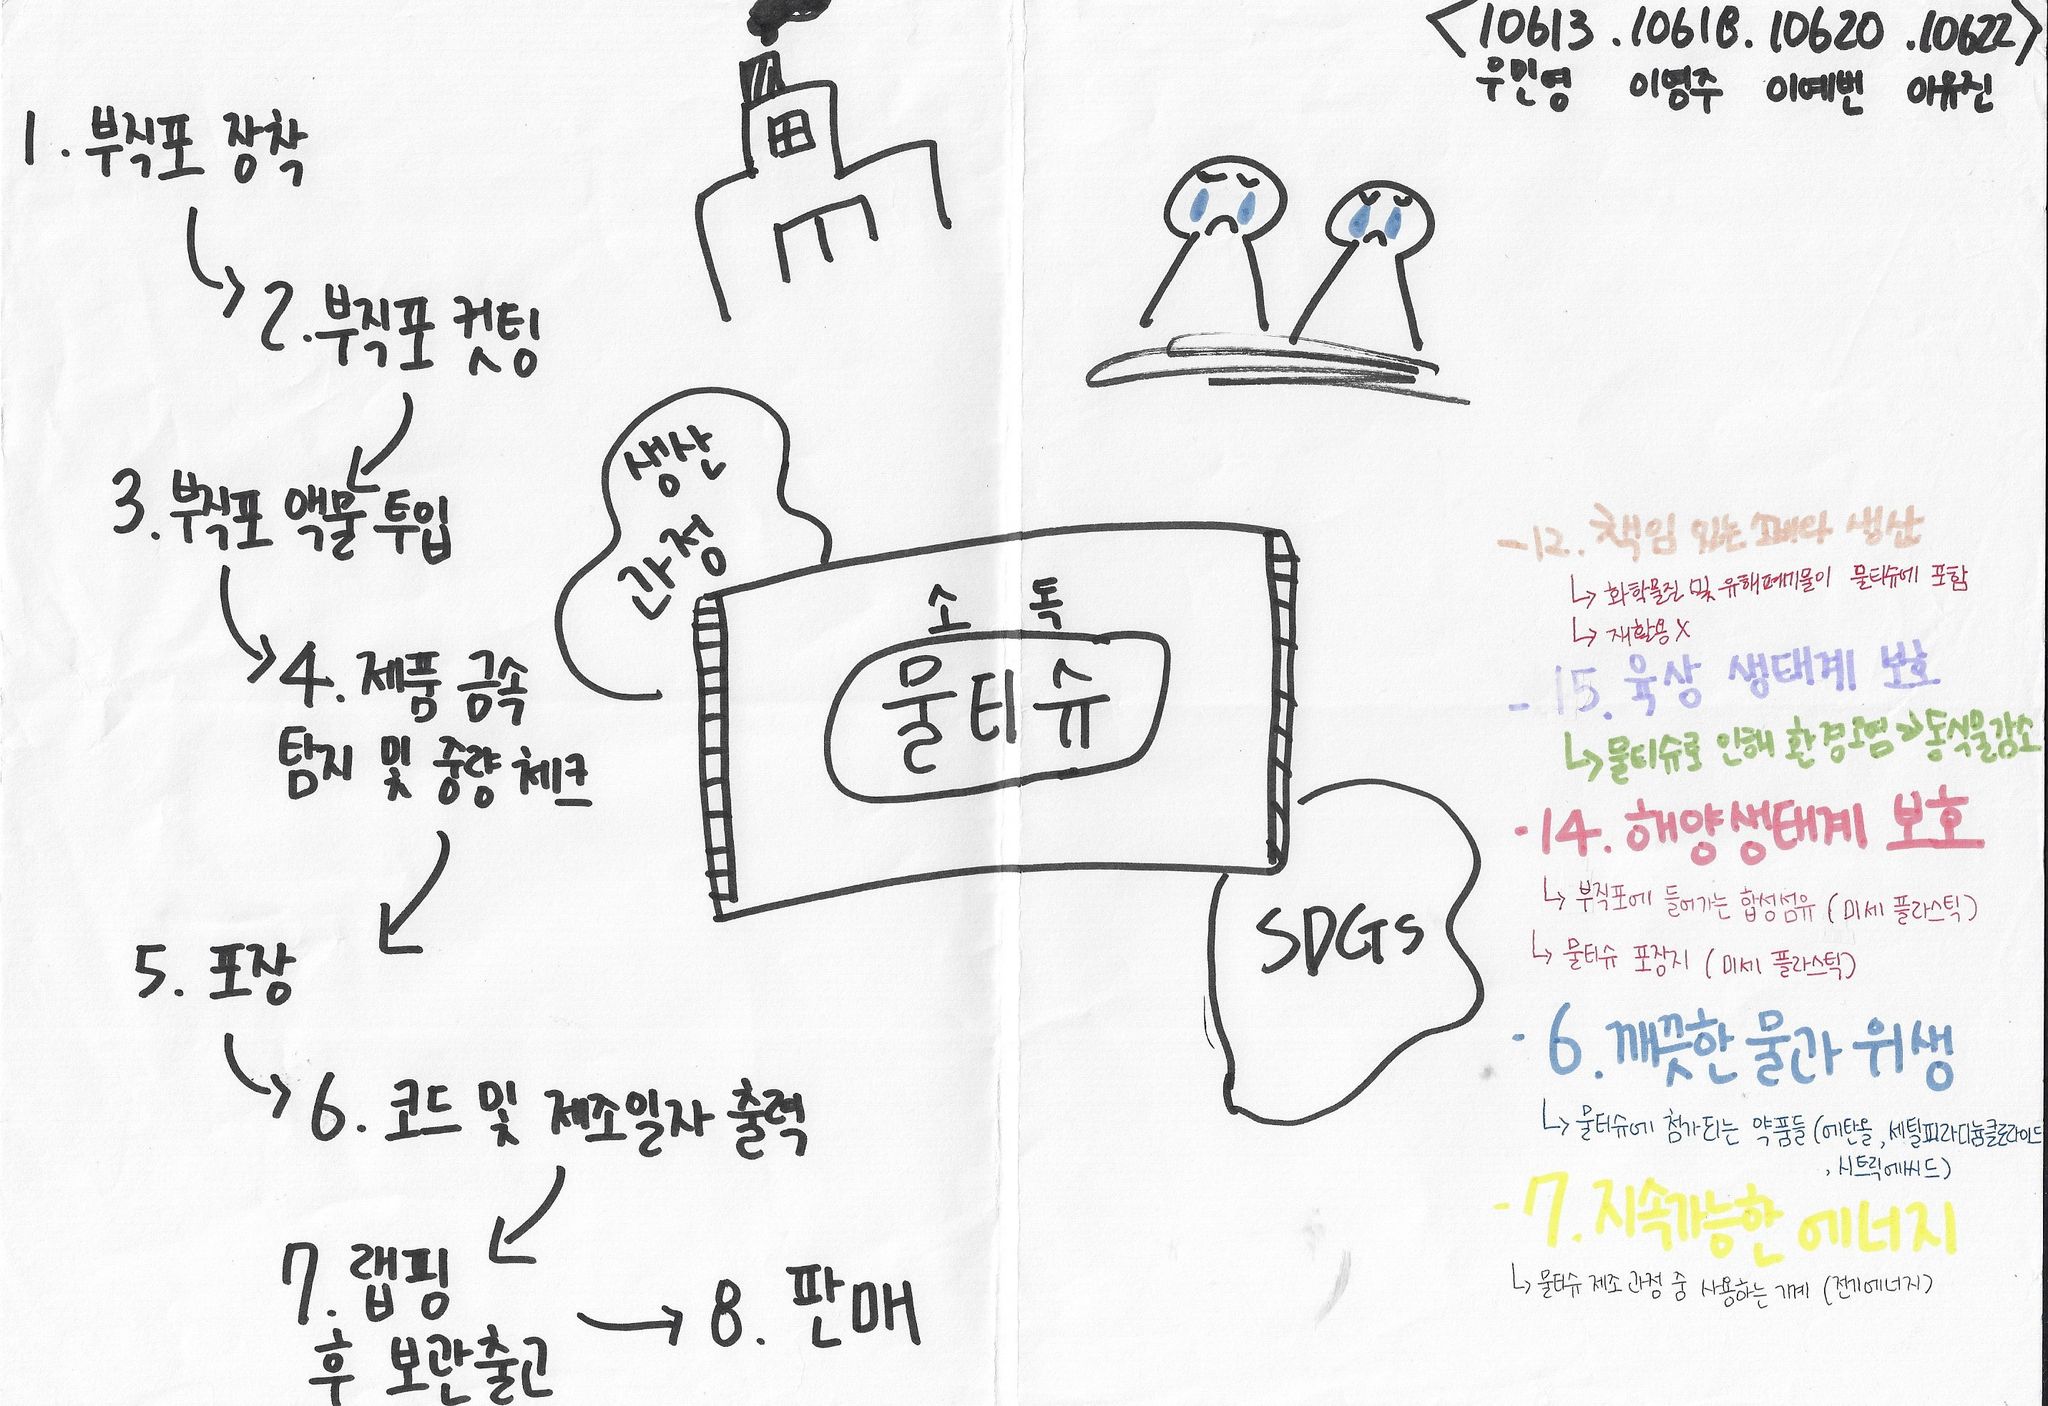 <10613 . 10618 . 10620 . 10622>
우민영 이영주 이예번 이유진
1. 부직포 장착
2. 부직포 컷팅
3. 부직포 액물 투입
4. 제품 금속
탐지 및 중량 체크
5. 포장
6. 코드 및 제조일자 출력
7. 랩핑
후 보관출고
8. 판매
생산
과정
소독
물티슈
SDGs
-12. 책임 있는 소비와 생산
↳ 화학물질 및 유해폐기물이 물티슈에 포함
↳ 재활용 X
- 15. 육상 생태계 보호
↳ 물티슈로 인해 환경오염 → 동식물감소
-14. 해양생태계 보호
↳ 부직포에 들어가는 합성섬유 (미세 플라스틱)
↳ 물티슈 포장지 (미세 플라스틱)
- 6. 깨끗한 물과 위생
↳ 물티슈에 첨가되는 약품들 (에탄올, 세틸피리디늄클로라이드
, 시트릭에씨드)
-7. 지속가능한 에너지
↳ 물티슈 제조 과정 중 사용하는 기계 (전기에너지)